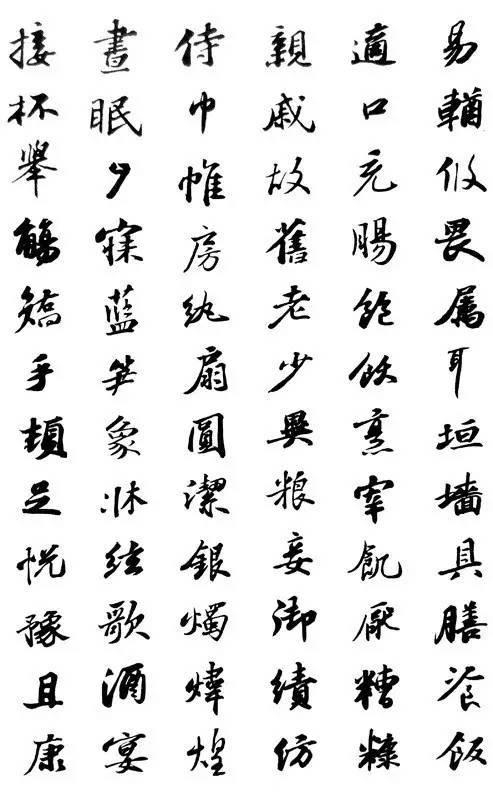 易輶攸畏属耳垣墙具膳飡飯
適口充腸飽飫烹宰飢厭糟糠
親戚故舊老少異粮妾御績仿
侍巾帷房紈扇圓潔銀燭煒煌
晝眠夕寐藍笋象牀絃歌酒宴
接杯舉觴矯手頓足悅豫且康